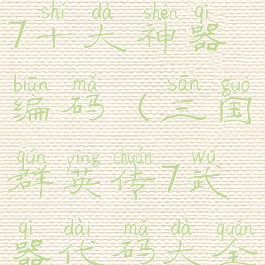 shí dà shén qì
7十大神器
biān mǎ sān guó
编码(三国
qún yīng chuán wǔ
群英传7武
qì dài mǎ dà quán
器代码大全